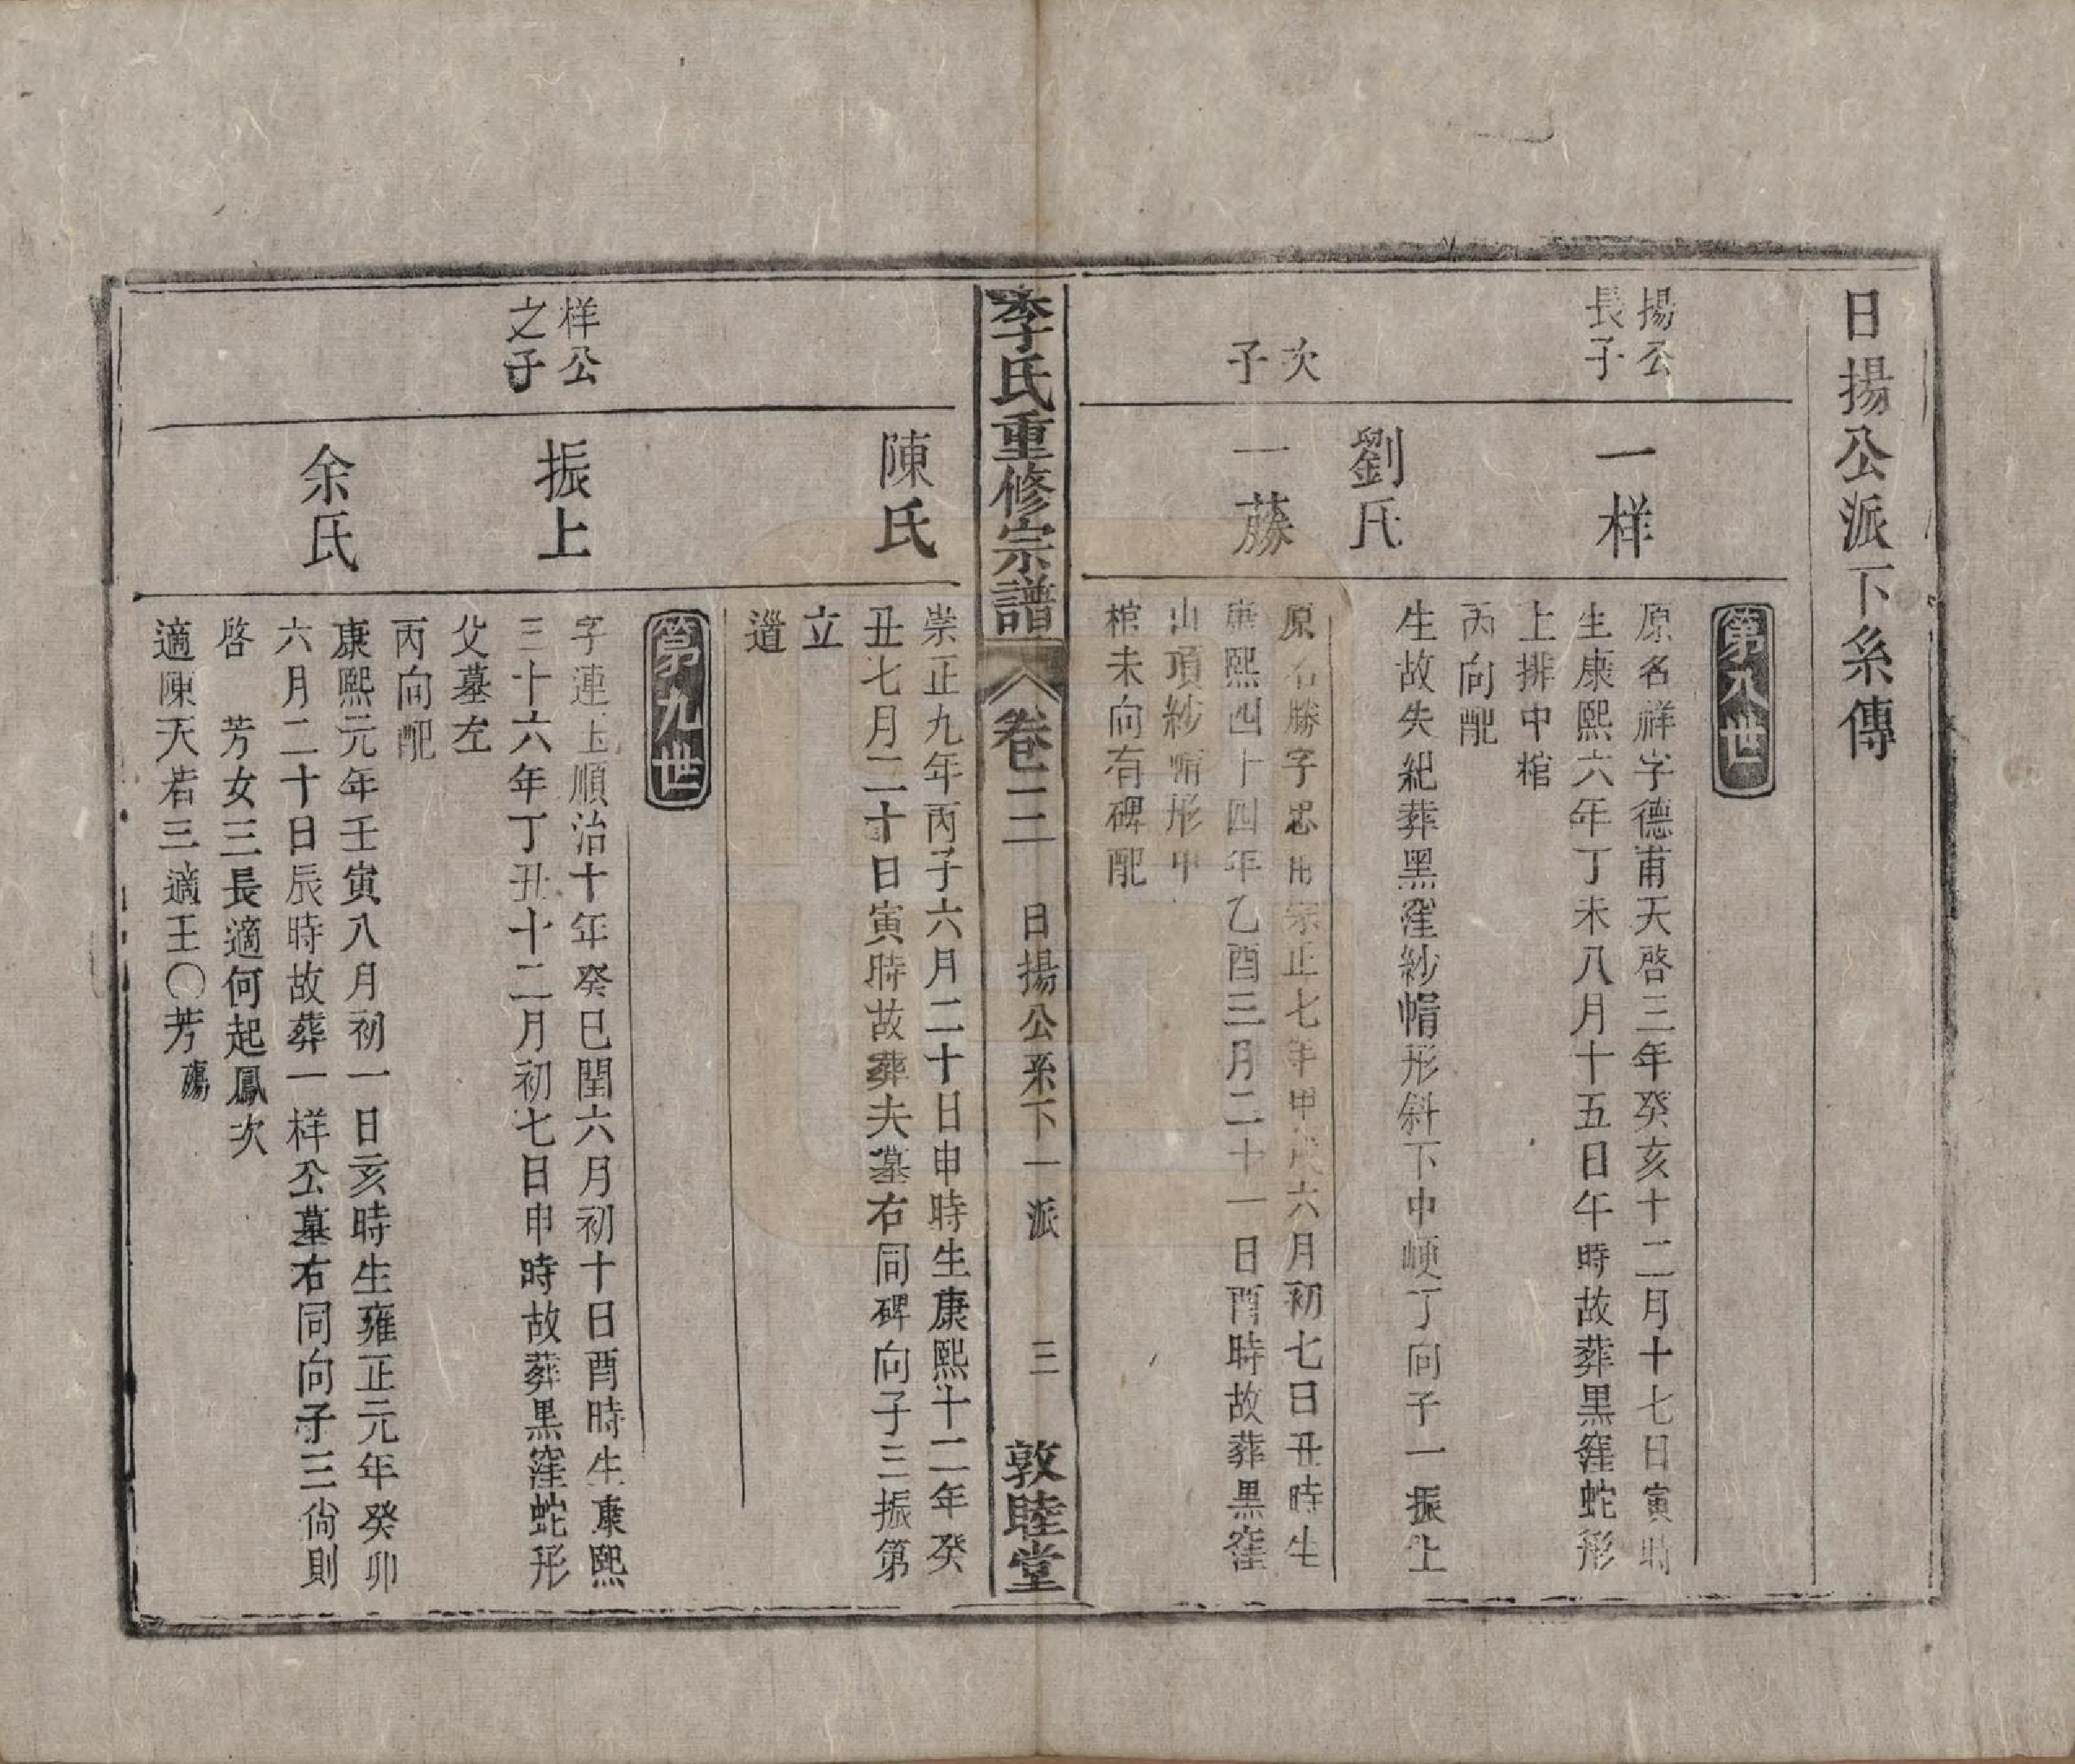 日揚公派下系傳
第八世
揚公
長子
一样
原名祥字德甫天啓三年癸亥十二月十七日寅時
生康熙六年丁未八月十五日午時故葬黑窪蛇形
上排中棺
丙向配
劉氏
生故失紀葬黑窪紗帽形斜下中㟂丁向子一振上
次
子
一蕂
原名勝字忠用崇正七年甲戌六月初七日丑時生
康熙四十四年乙酉三月二十一日酉時故葬黑窪
山項紗帽形中
棺未向有碑配
李氏重修宗譜
卷二二
日揚公系下一派
三
敦睦堂
陳氏
崇正九年丙子六月二十日申時生康熙十二年癸
丑七月二十日寅時故葬夫墓右同碑向子三振第
立
道
第九世
样公
之子
振上
字連玉順治十年癸巳閏六月初十日酉時生康熙
三十六年丁丑十二月初七日申時故葬黑窪蛇形
父墓左
丙向配
余氏
康熙元年壬寅八月初一日亥時生雍正元年癸卯
六月二十日辰時故葬一样公墓右同向子三尙則
啓 芳女三長適何起鳳次
適陳天若三適王〇芳殤